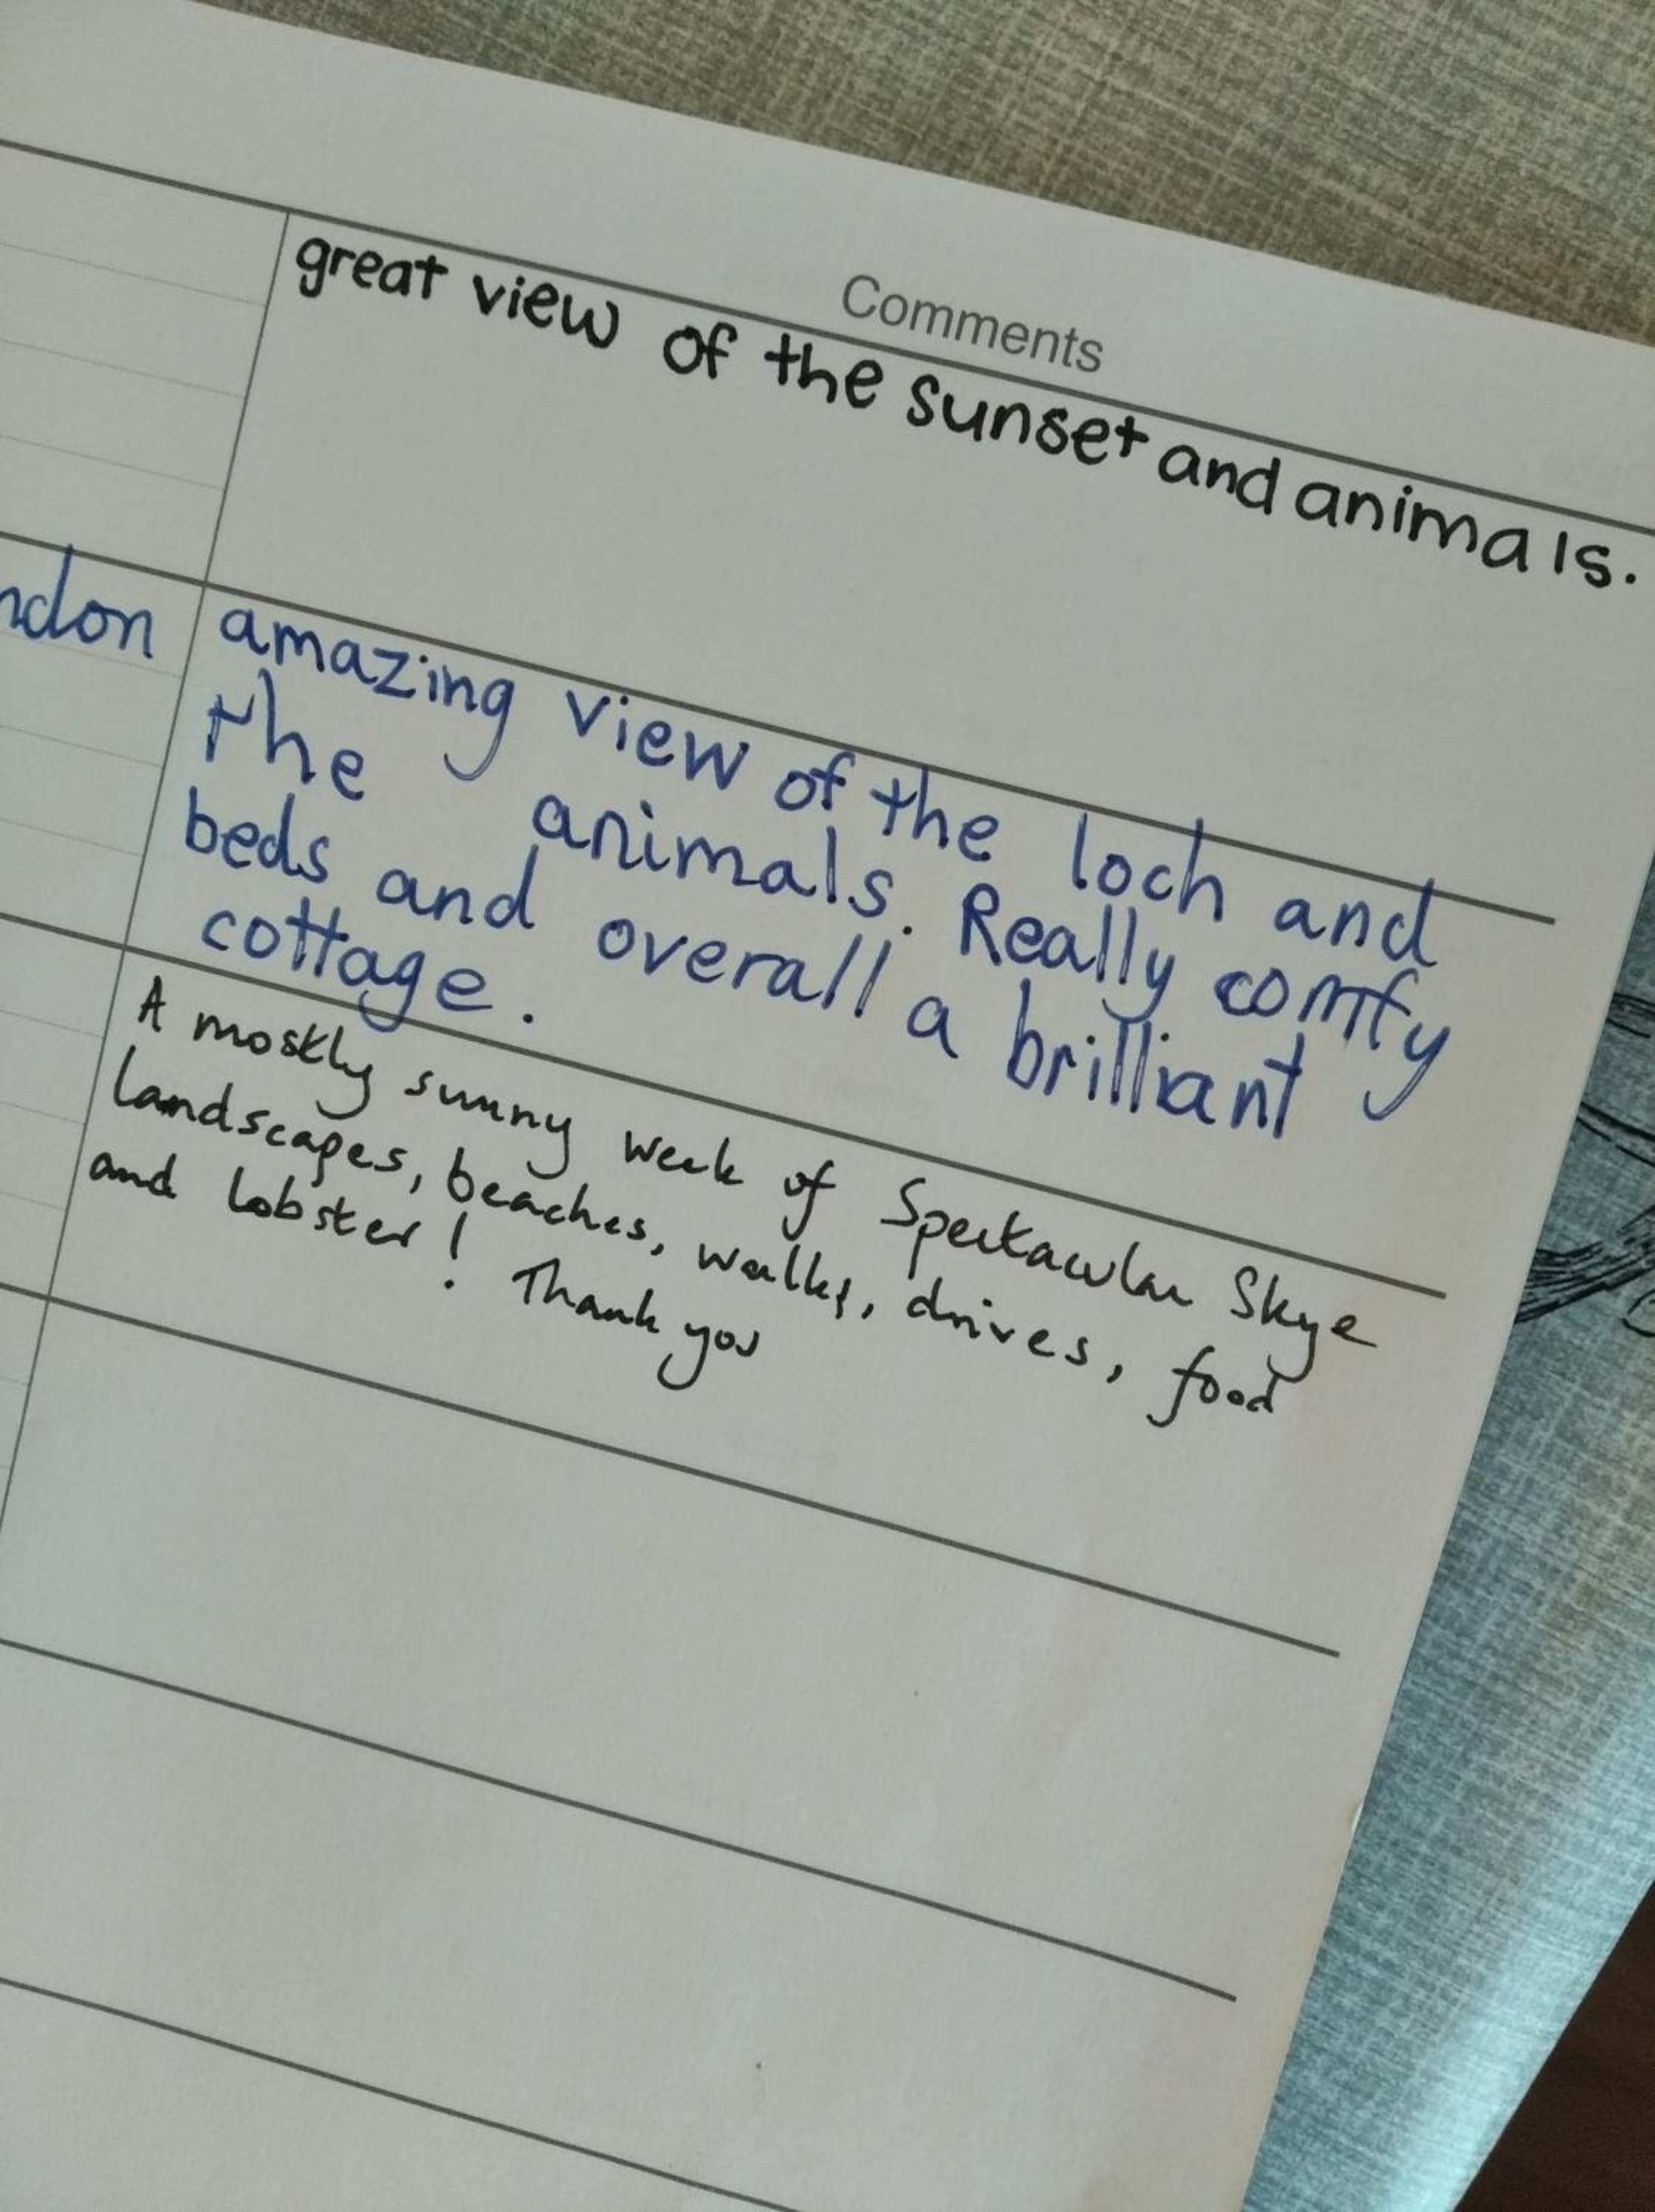 Comments
great view of the sunset and animals.
ndon
amazing view of the loch and
the animals. Really comfy
beds and overall a brilliant
cottage.
A mostly sunny week of Spectacular Skye
landscapes, beaches, walks, drives, food
and lobster! Thank you